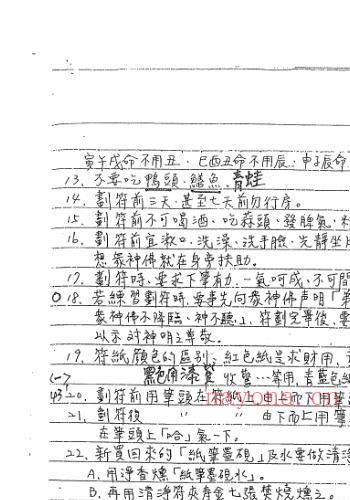 寅午戌命不用丑.巳酉丑命不用辰.申子辰命
13.不要吃鴨頭.鱔魚.青蛙
14.劃符前三天.甚至七天前勿行房。
15.劃符前不可喝酒.吃蒜頭.發脾氣.
16.劃符前宜漱口.洗澡.洗手臉.先靜坐片
想眾神佛就在身旁扶助。
17.劃符時.要求下筆有力.一氣呵成.不可間
18.若練習劃符時.要事先向眾神佛声明「第
眾神佛不降臨、神不聽」.符劃完畢後.要
以示討神明之尊敬。
19.符紙顏色的區別:紅色紙是求財用.
黑色用漆 收驚…等用.青藍色紙
20.劃符前用筆頭在符紙 由上而下用筆
21.劃符後 〃 〃 由下而上用筆
在筆頭上「哈」氣一下。
22.新買回來的「紙筆墨硯」及水要做清淨
A.用淨香燻「紙筆墨硯水」。
B.再用清淨符夾壽金七張焚燒燻之。